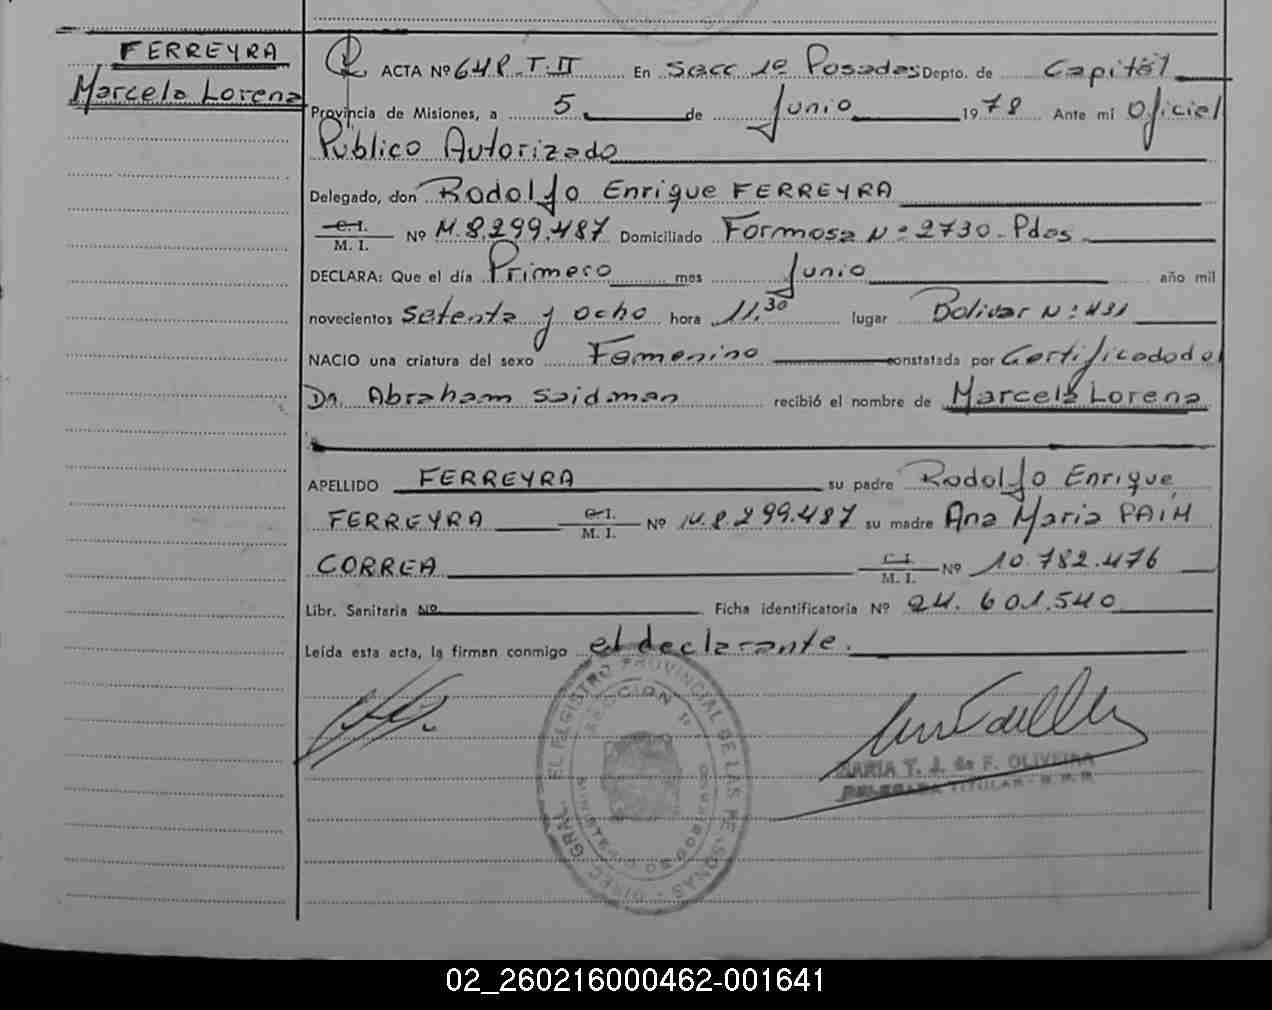 FERREYRA
Marcela Lorena
ACTA Nº 648.T.II En Secc 1º Posadas Depto. de Capital
Provincia de Misiones, a 5 de Junio 1978 Ante mi Oficial
Público Autorizado
Delegado, don Rodolfo Enrique FERREYRA
C.I.
M. I. Nº M.8.299.487 Domiciliado Formosa Nº 2730-Pdas
DECLARA: Que el día Primero mes Junio año mil
novecientos Setenta y Ocho hora 11,30 lugar Bolivar Nº:431
NACIO una criatura del sexo Femenino constatada por Certificado del
Dr. Abraham Saidman recibió el nombre de Marcela Lorena
APELLIDO FERREYRA su padre Rodolfo Enrique
FERREYRA C.I.
M. I. Nº M.8.299.487 su madre Ana Maria PAIM
CORREA C.I.
M. I. Nº 10.782.476
Libr. Sanitaria Nº Ficha identificatoria Nº 24.601.540
Leída esta acta, la firman conmigo el declarante.
DIREC. GRAL. EL REGISTRO PROVINCIAL DE LAS PERSONAS
SECCION 1a
MARIA T. J. de F. OLIVEIRA
DELEGADA TITULAR - R.P.P.
02_260216000462-001641